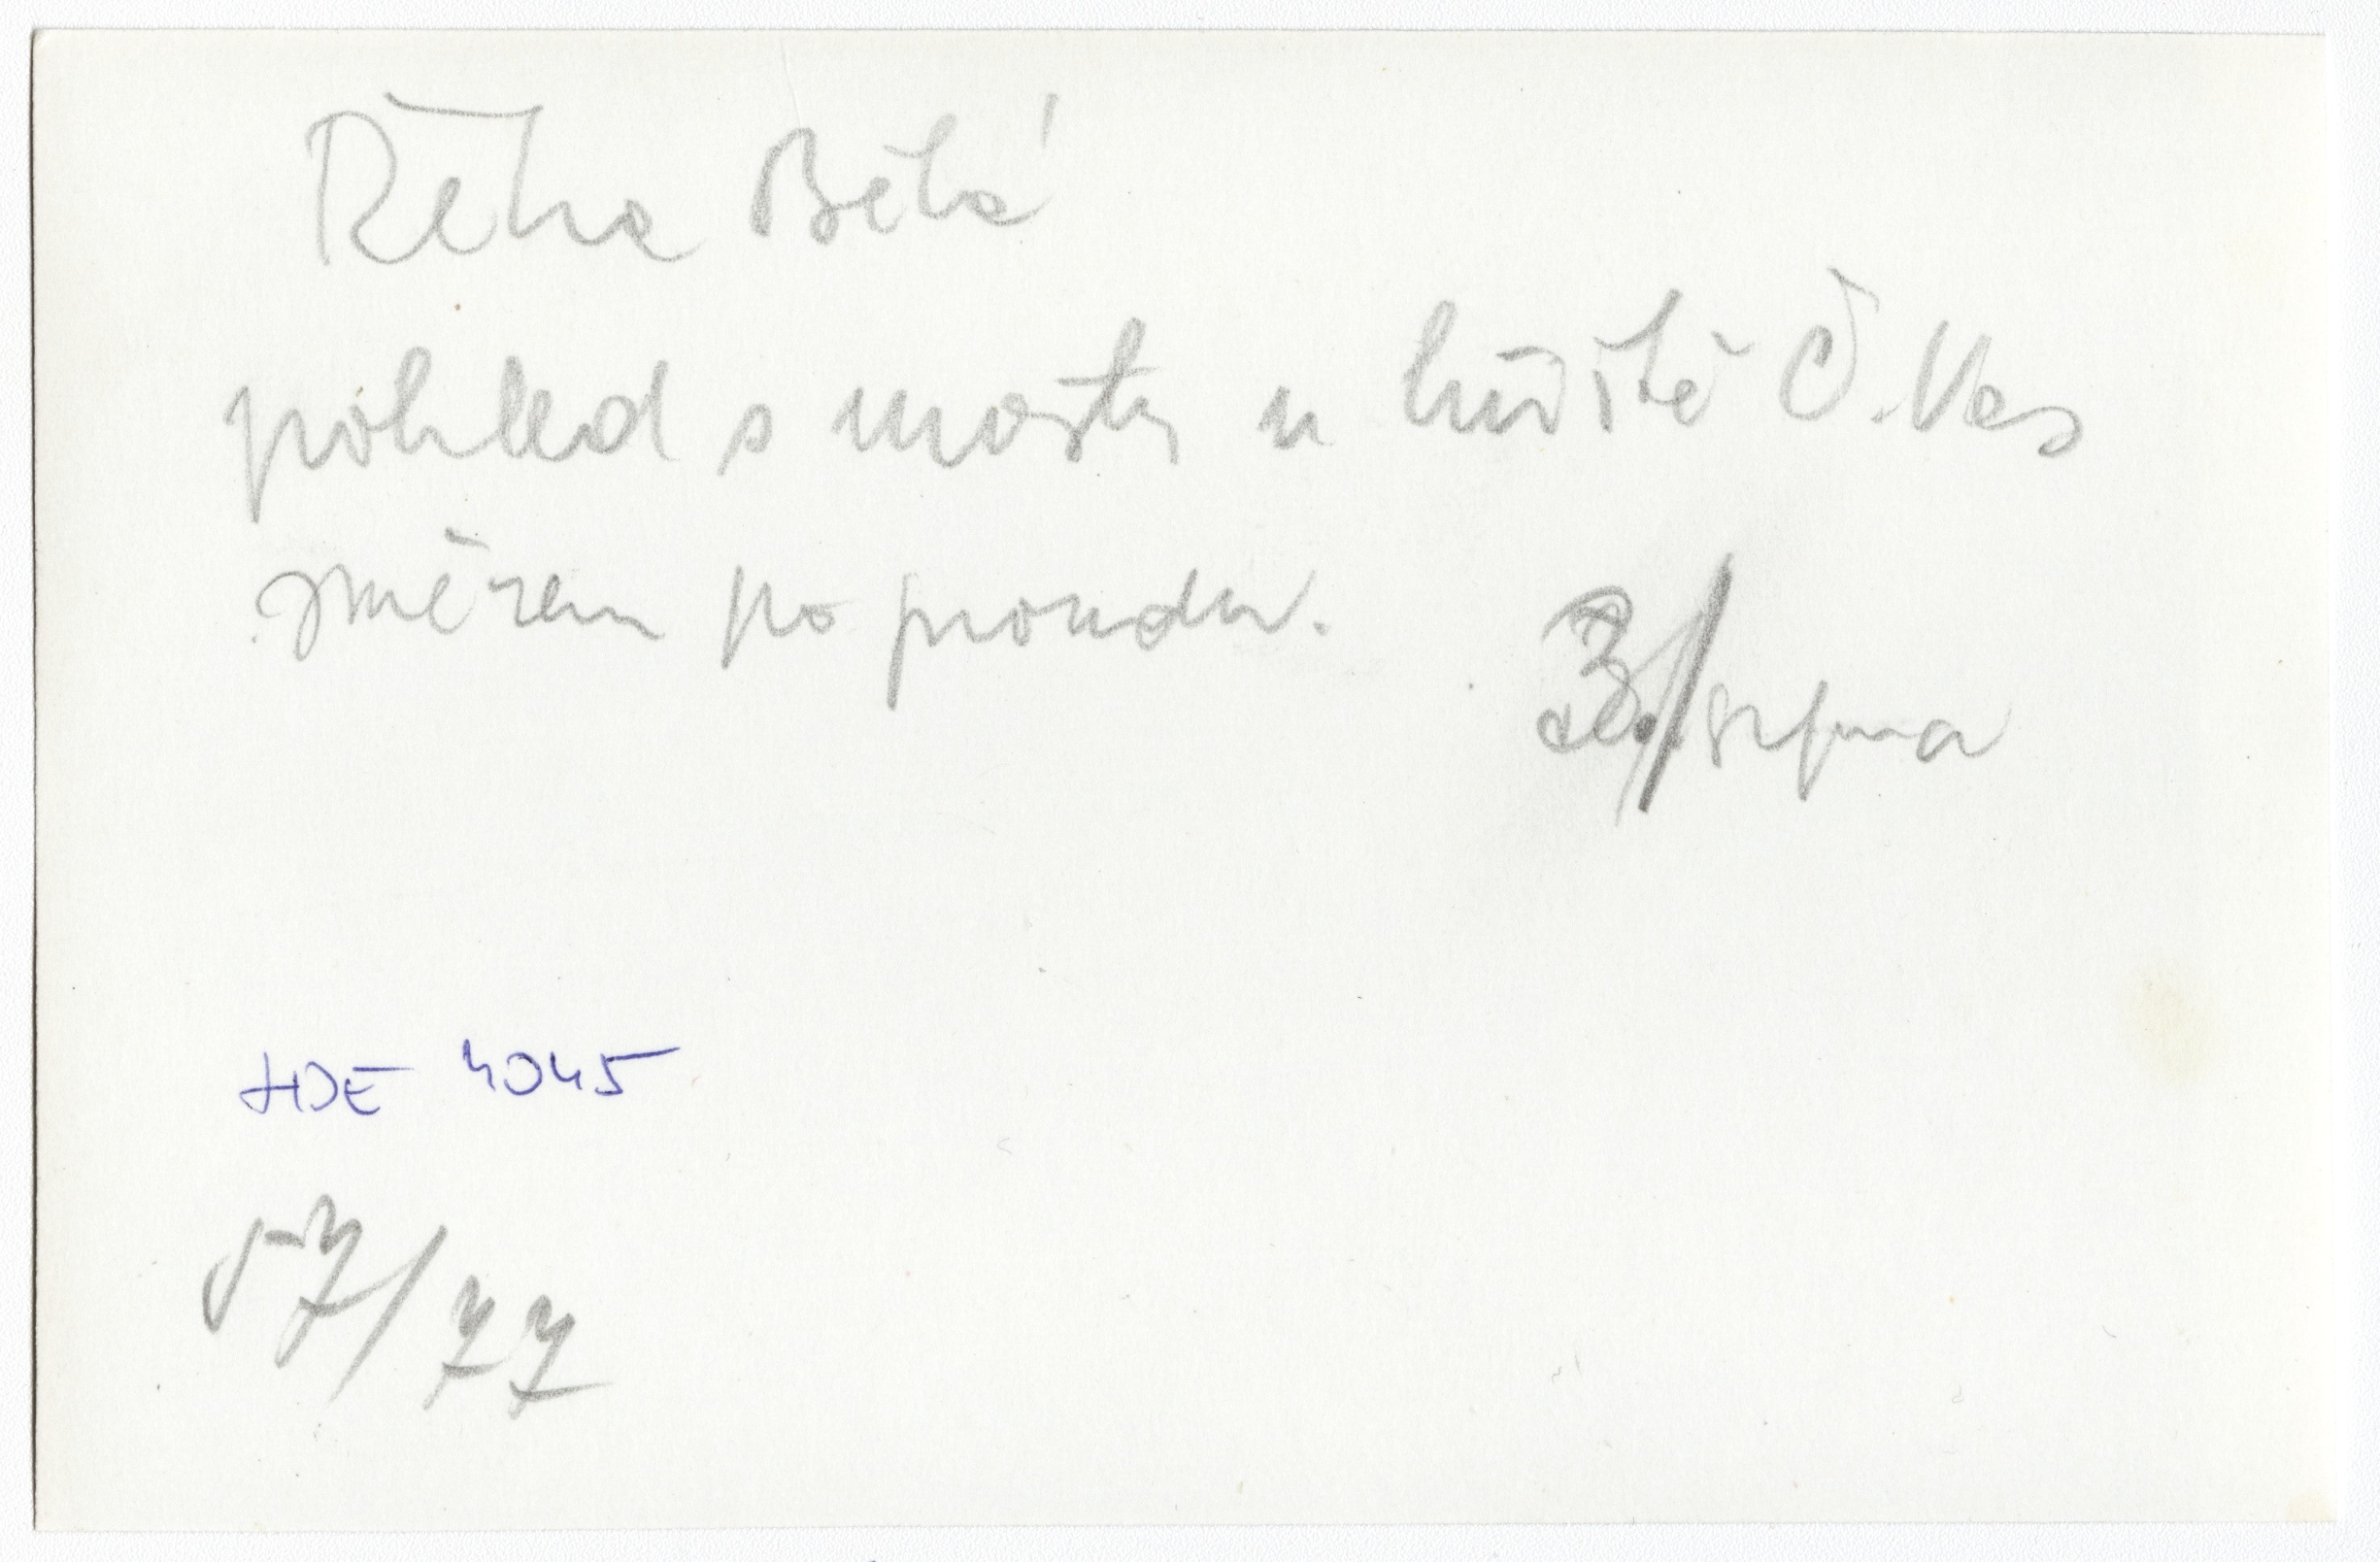 Řeka Bělá
pohled s mostu u hřiště Č. Ves
směrem po proudu.
3./srpna
HDE 4045
57/77